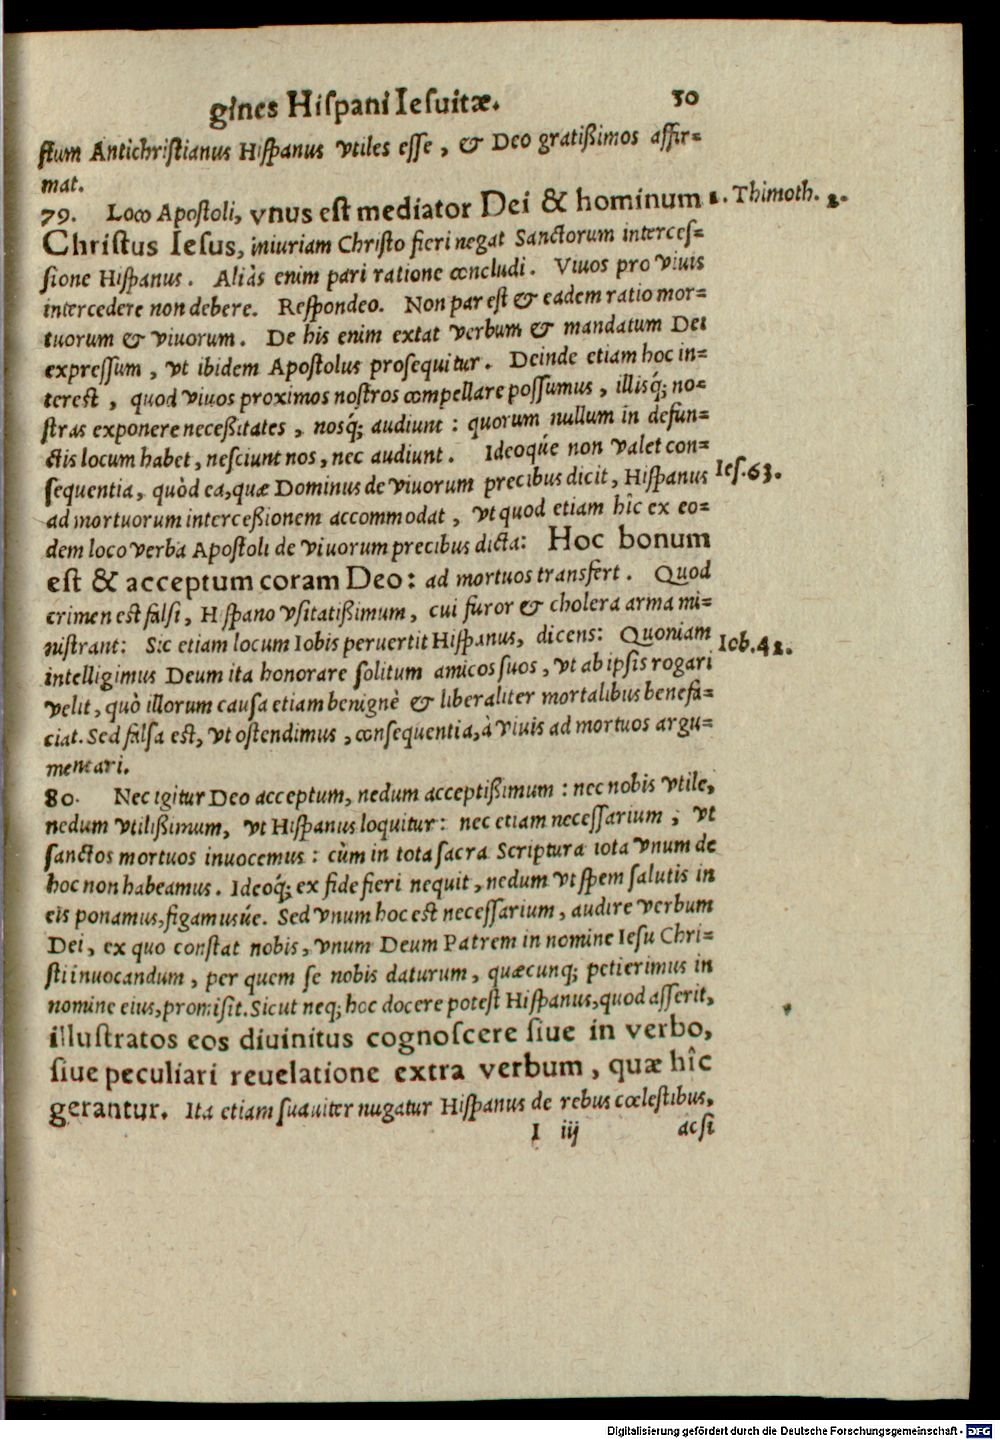 gines Hiſpani Ieſuitæ. 50
ſtum Antichriſtianus Hiſpanus vtiles eſſe, & Deo gratißimos affir-
mat.
79. Loco Apoſtoli, vnus eſt mediator Dei & hominum 1. Thimoth. 2.
Chriſtus Ieſus, iniuriam Chriſto fieri negat Sanctorum interceſ-
ſione Hiſpanus. Aliàs enim pari ratione concludi. Viuos pro viuis
intercedere non debere. Reſpondeo. Non par eſt & eadem ratio mor-
tuorum & viuorum. De his enim extat verbum & mandatum Dei
expreſſum, vt ibidem Apoſtolus proſequitur. Deinde etiam hoc in-
tereſt, quod viuos proximos noſtros compellare poſſumus, illisq́; no-
ſtras exponere neceßitates, nosq́; audiunt: quorum nullum in defun-
ctis locum habet, neſciunt nos, nec audiunt. Ideoqúe non valet con-
ſequentia, quòd ea, quæ Dominus de viuorum precibus dicit, Hiſpanus Ieſ. 63.
ad mortuorum interceßionem accommodat, vt quod etiam hîc ex eo-
dem loco verba Apoſtoli de viuorum precibus dicta: Hoc bonum
eſt & acceptum coram Deo: ad mortuos transfert. Quod
crimen eſt falſi, Hiſpano vſitatißimum, cui furor & cholera arma mi-
niſtrant: Sic etiam locum Iobis peruertit Hiſpanus, dicens: Quoniam Iob. 42.
intelligimus Deum ita honorare ſolitum amicos ſuos, vt ab ipſis rogari
velit, quò illorum cauſa etiam benignè & liberaliter mortalibus benefa-
ciat. Sed falſa eſt, vt oſtendimus, conſequentia, à viuis ad mortuos argu-
mentari.
80. Nec igitur Deo acceptum, nedum acceptißimum: nec nobis vtile,
nedum vtilißimum, vt Hiſpanus loquitur: nec etiam neceſſarium, vt
ſanctos mortuos inuocemus: cùm in tota ſacra Scriptura iota vnum de
hoc non habeamus. Ideoq́; ex fide fieri nequit, nedum vt ſpem ſalutis in
eis ponamus, figamusúe. Sed vnum hoc eſt neceſſarium, audire verbum
Dei, ex quo conſtat nobis, vnum Deum Patrem in nomine Ieſu Chri-
ſti inuocandum, per quem ſe nobis daturum, quæcunq; petierimus in
nomine eius, promiſit. Sicut neq; hoc docere poteſt Hiſpanus, quod aſſerit,
illuſtratos eos diuinitus cognoſcere ſiue in verbo,
ſiue peculiari reuelatione extra verbum, quæ hîc
gerantur. Ita etiam ſuauiter nugatur Hiſpanus de rebus cœleſtibus,
I iij acſi
Digitalisierung gefördert durch die Deutsche Forschungsgemeinschaft - DFG